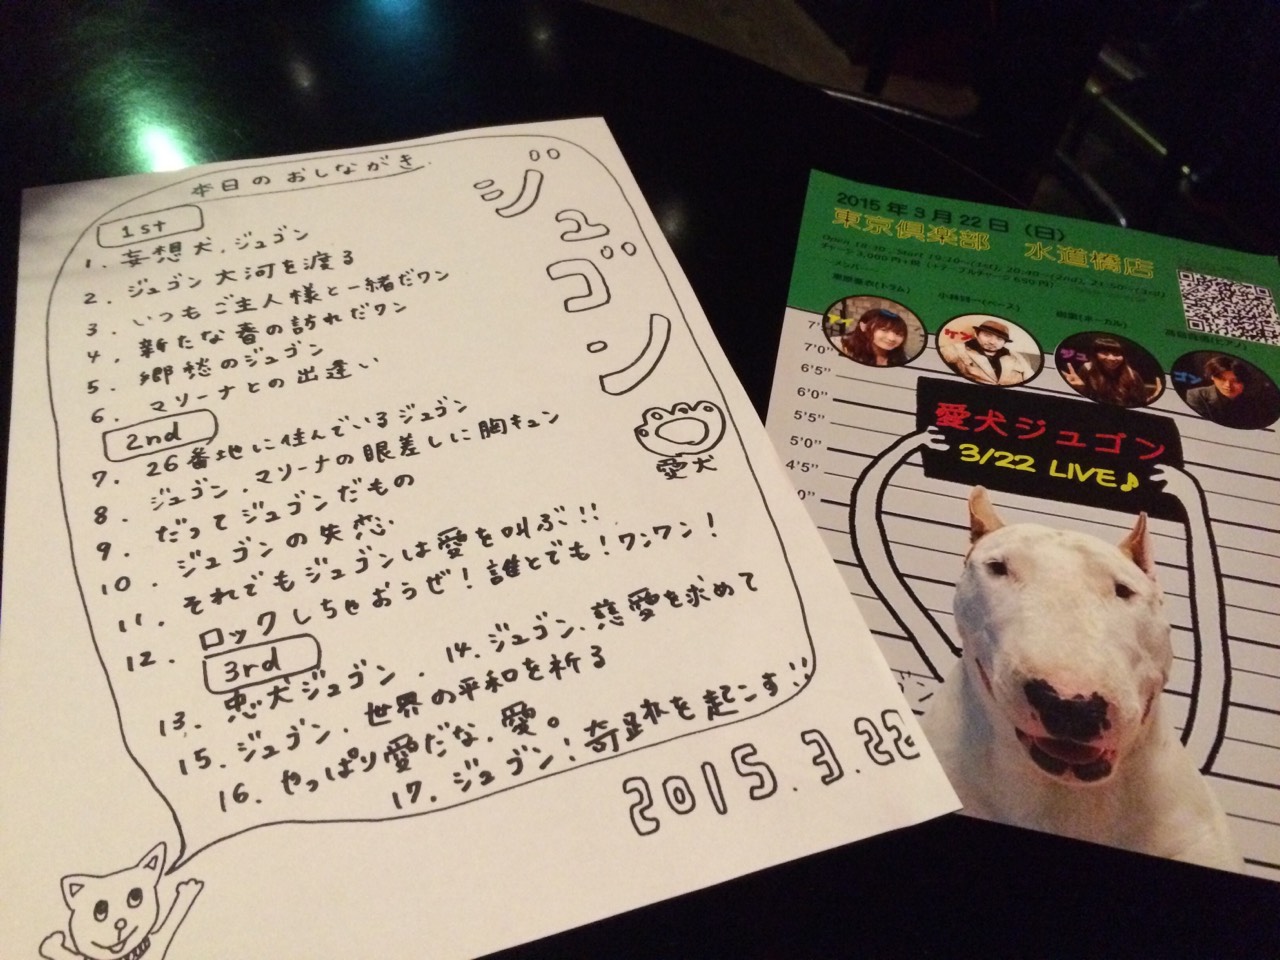 本日のおしながき
ジュゴン
愛犬
1st
1. 妄想犬、ジュゴン
2. ジュゴン大河を渡る
3. いつもご主人様と一緒だワン
4. 新たな春の訪れだワン
5. 郷愁のジュゴン
6. マリーナとの出逢い
2nd
7. 26番地に住んでいるジュゴン
8. ジュゴン、マリーナの眼差しに胸キュン
9. だってジュゴンだもの
10. ジュゴンの失恋
11. それでもジュゴンは愛を叫ぶ!!
12. ロックしちゃおうぜ!誰とでも!ワンワン!
3rd
13. 忠犬ジュゴン. 14. ジュゴン、慈愛を求めて
15. ジュゴン、世界の平和を祈る
16. やっぱり愛だな、愛。
17. ジュゴン!奇跡を起こす!!
2015.3.22
2015年3月22日(日)
東京倶楽部 水道橋店
メンバー
アイ
ケン
ジュ
ゴン
7'0"
6'5"
6'0"
5'5"
5'0"
4'5"
愛犬ジュゴン
3/22 LIVE♪